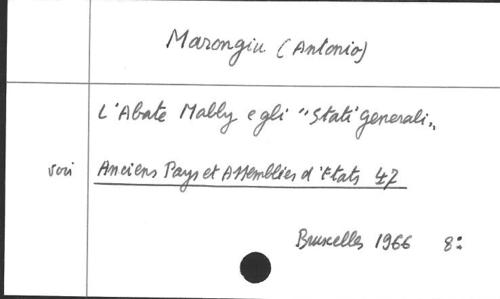 Marongiu (Antonio)
L'Abate Mably e gli "Stati generali„
voir Anciens Pays et Assemblées d'Etats 47
Bruxelles 1966 8: